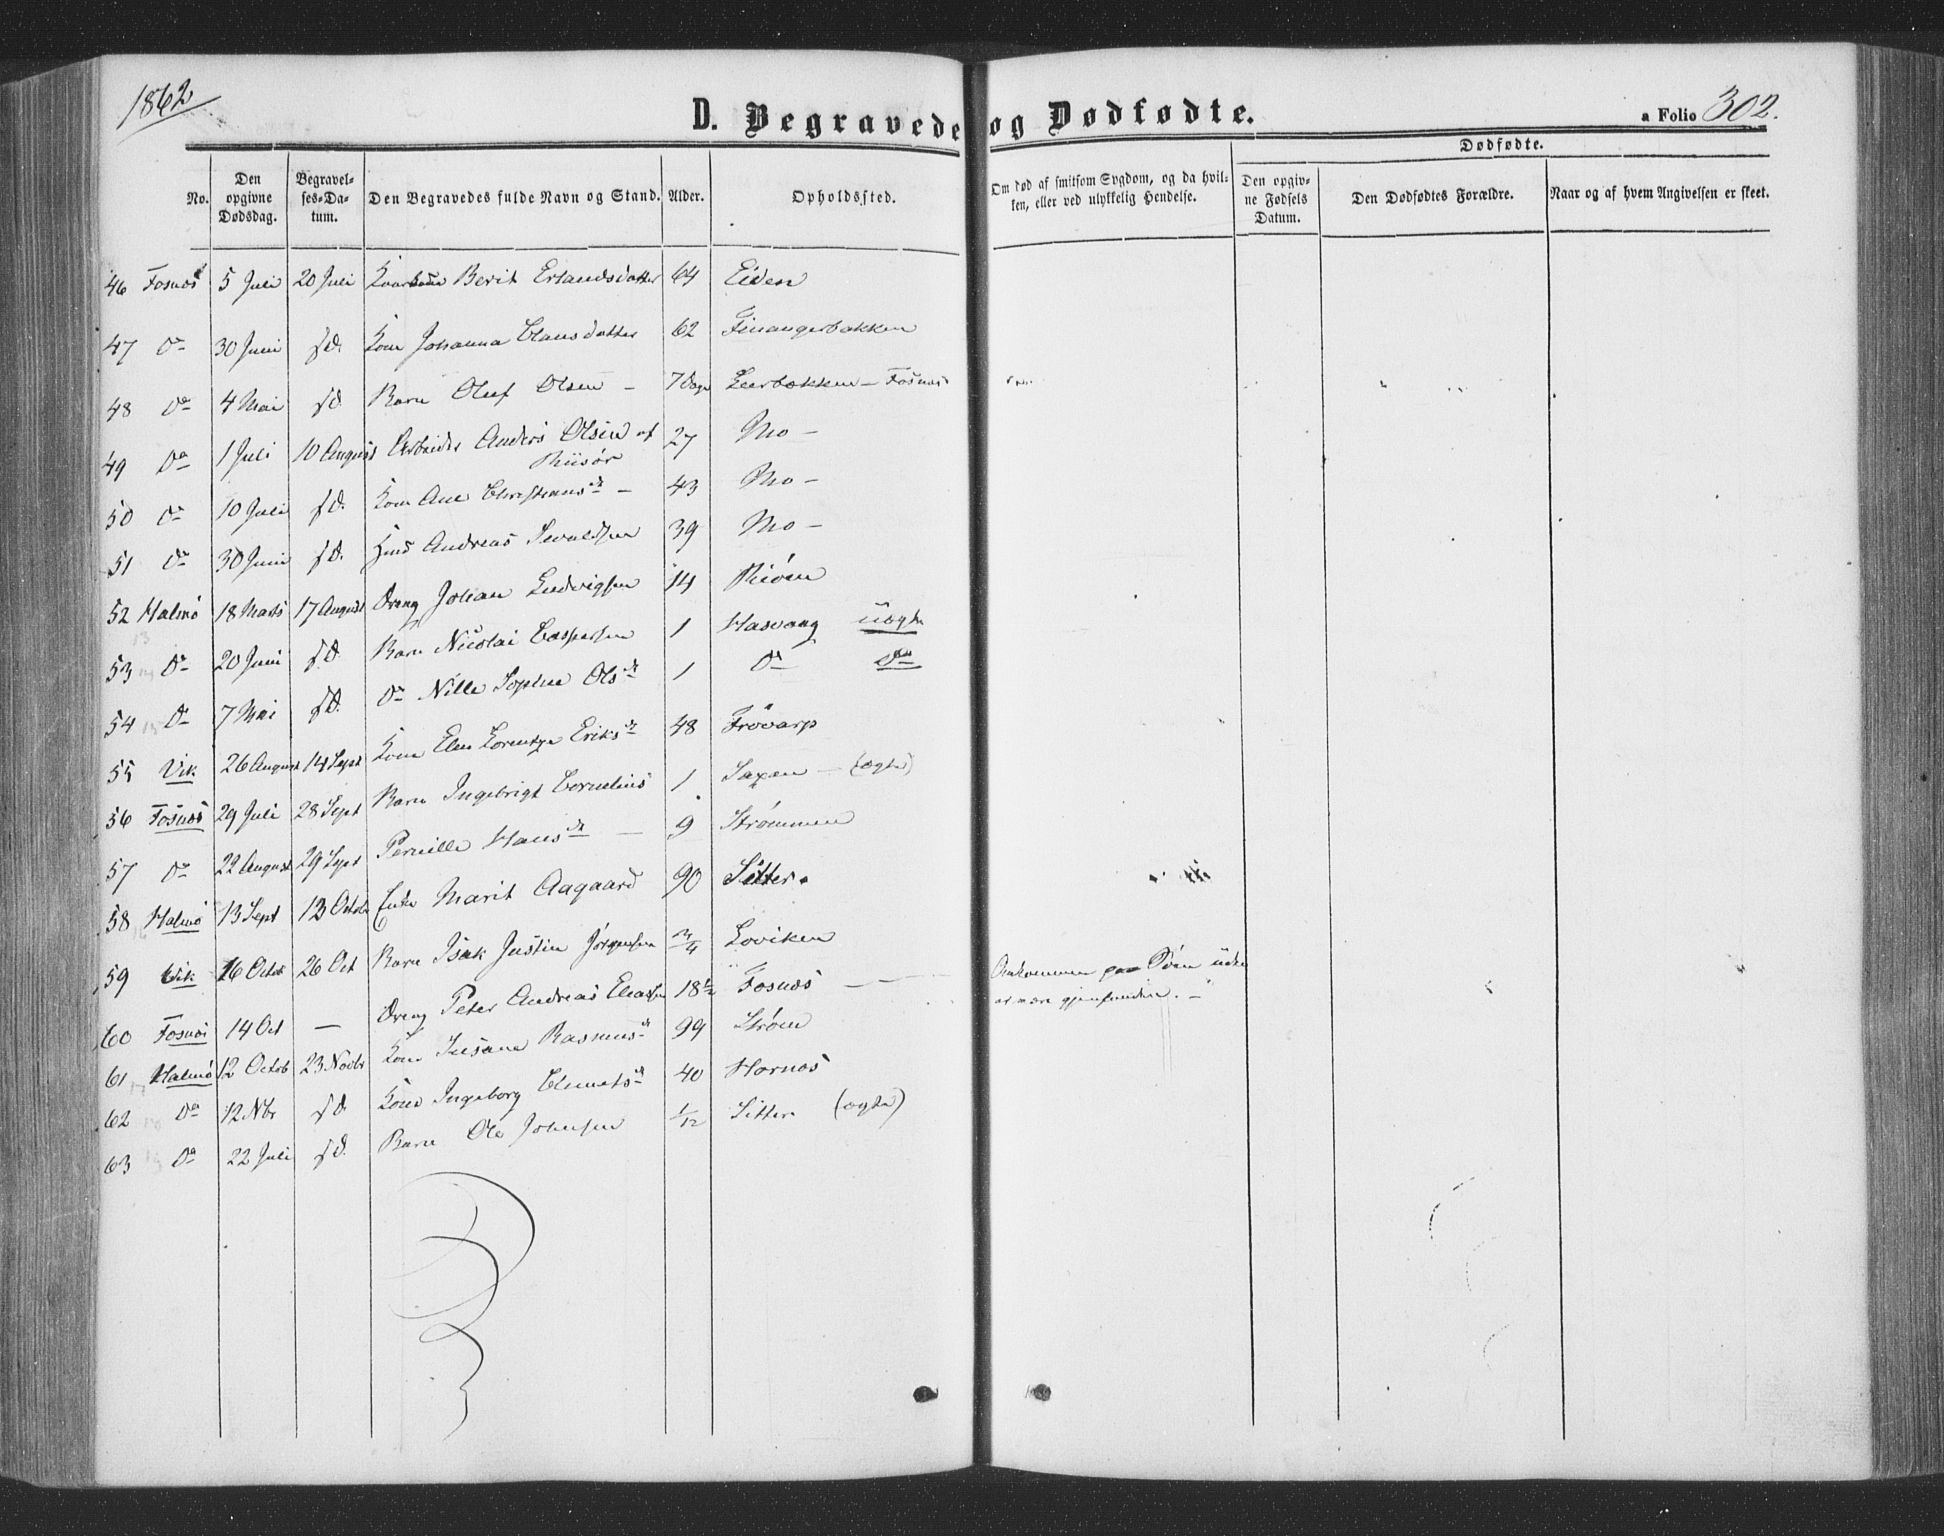 1862
D. Begravede og Dødfødte.
a Folio 302.
Dødfødte.
No.
Den opgivne Dødsdag.
Begravelses-Datum.
Den Begravedes fulde Navn og Stand.
Alder.
Opholdssted.
Om død af smitsom Sygdom, og da hvilken, eller ved ulykkelig Hendelse.
Den opgivne Fødsels Datum.
Den Dødfødtes Forældre.
Naar og af hvem Angivelsen er skeet.
46 Fosnæs 5 Juli 20 Juli Berit Erlandsdatter 64 Eiden
47 Do 30 Juni s.D. Kone Johanna Clausdatter 62 Finangerbakken
48 Do 4 Mai s.D. Barn Oluf Olsen – 7 Dage Leerbakken – Fosnæs
49 Do 1 Juli 10 August Arbeider Anders Olsen af 27 Mo –
Riisør
50 Do 10 Juli s.D. Kone Ane Christiansdr – 43 Mo –
51 Do 30 Juni s.D. Andreas Sevaldsen 39 Mo –
52 Halmø 18 Marts 17 August Dreng Johan Ludvigsen 14
53 Do 20 Juni s.D. Barn Nicolai Caspersen 1 Hasvaag uægte
54 Do 7 Mai s.D. Do Nille Sophie Olsdr 1 Do Do
55 Vik 26 August 14 Sept Kone Elen Lorentze Eriksdr 48 Frøvarp
56 Fosnæs 29 Juli 28 Sept Barn Ingebrigt Cornelius 1 Saxen – (ægte)
57 Do 22 August 29 Sept Pernille Hansdr – 9 Strømmen
58 Halmø 13 Sept 13 Octobr Enke Marit Aagaard 90 Sitter.
59 Vik 16 Octob 26 Oct Barn Isak Justin Jørgensen 3/4 Loviken
60 Fosnæs 14 Oct — Dreng Peter Andreas Eliassen 18½ Fosnæs – – Omkommen paa Søen uden
at være gjenfunden. –
61 Halmø 12 Octob 23 Novbr Kone Susane Rasmusdr 99 Strøm
62 Do 12 Nbr s.D. Kone Ingeborg Clemetsdr 40 Hornæs
63 Do 22 Juli s.D. Barn Ole Johnsen 1/12 Sitter (ægte)